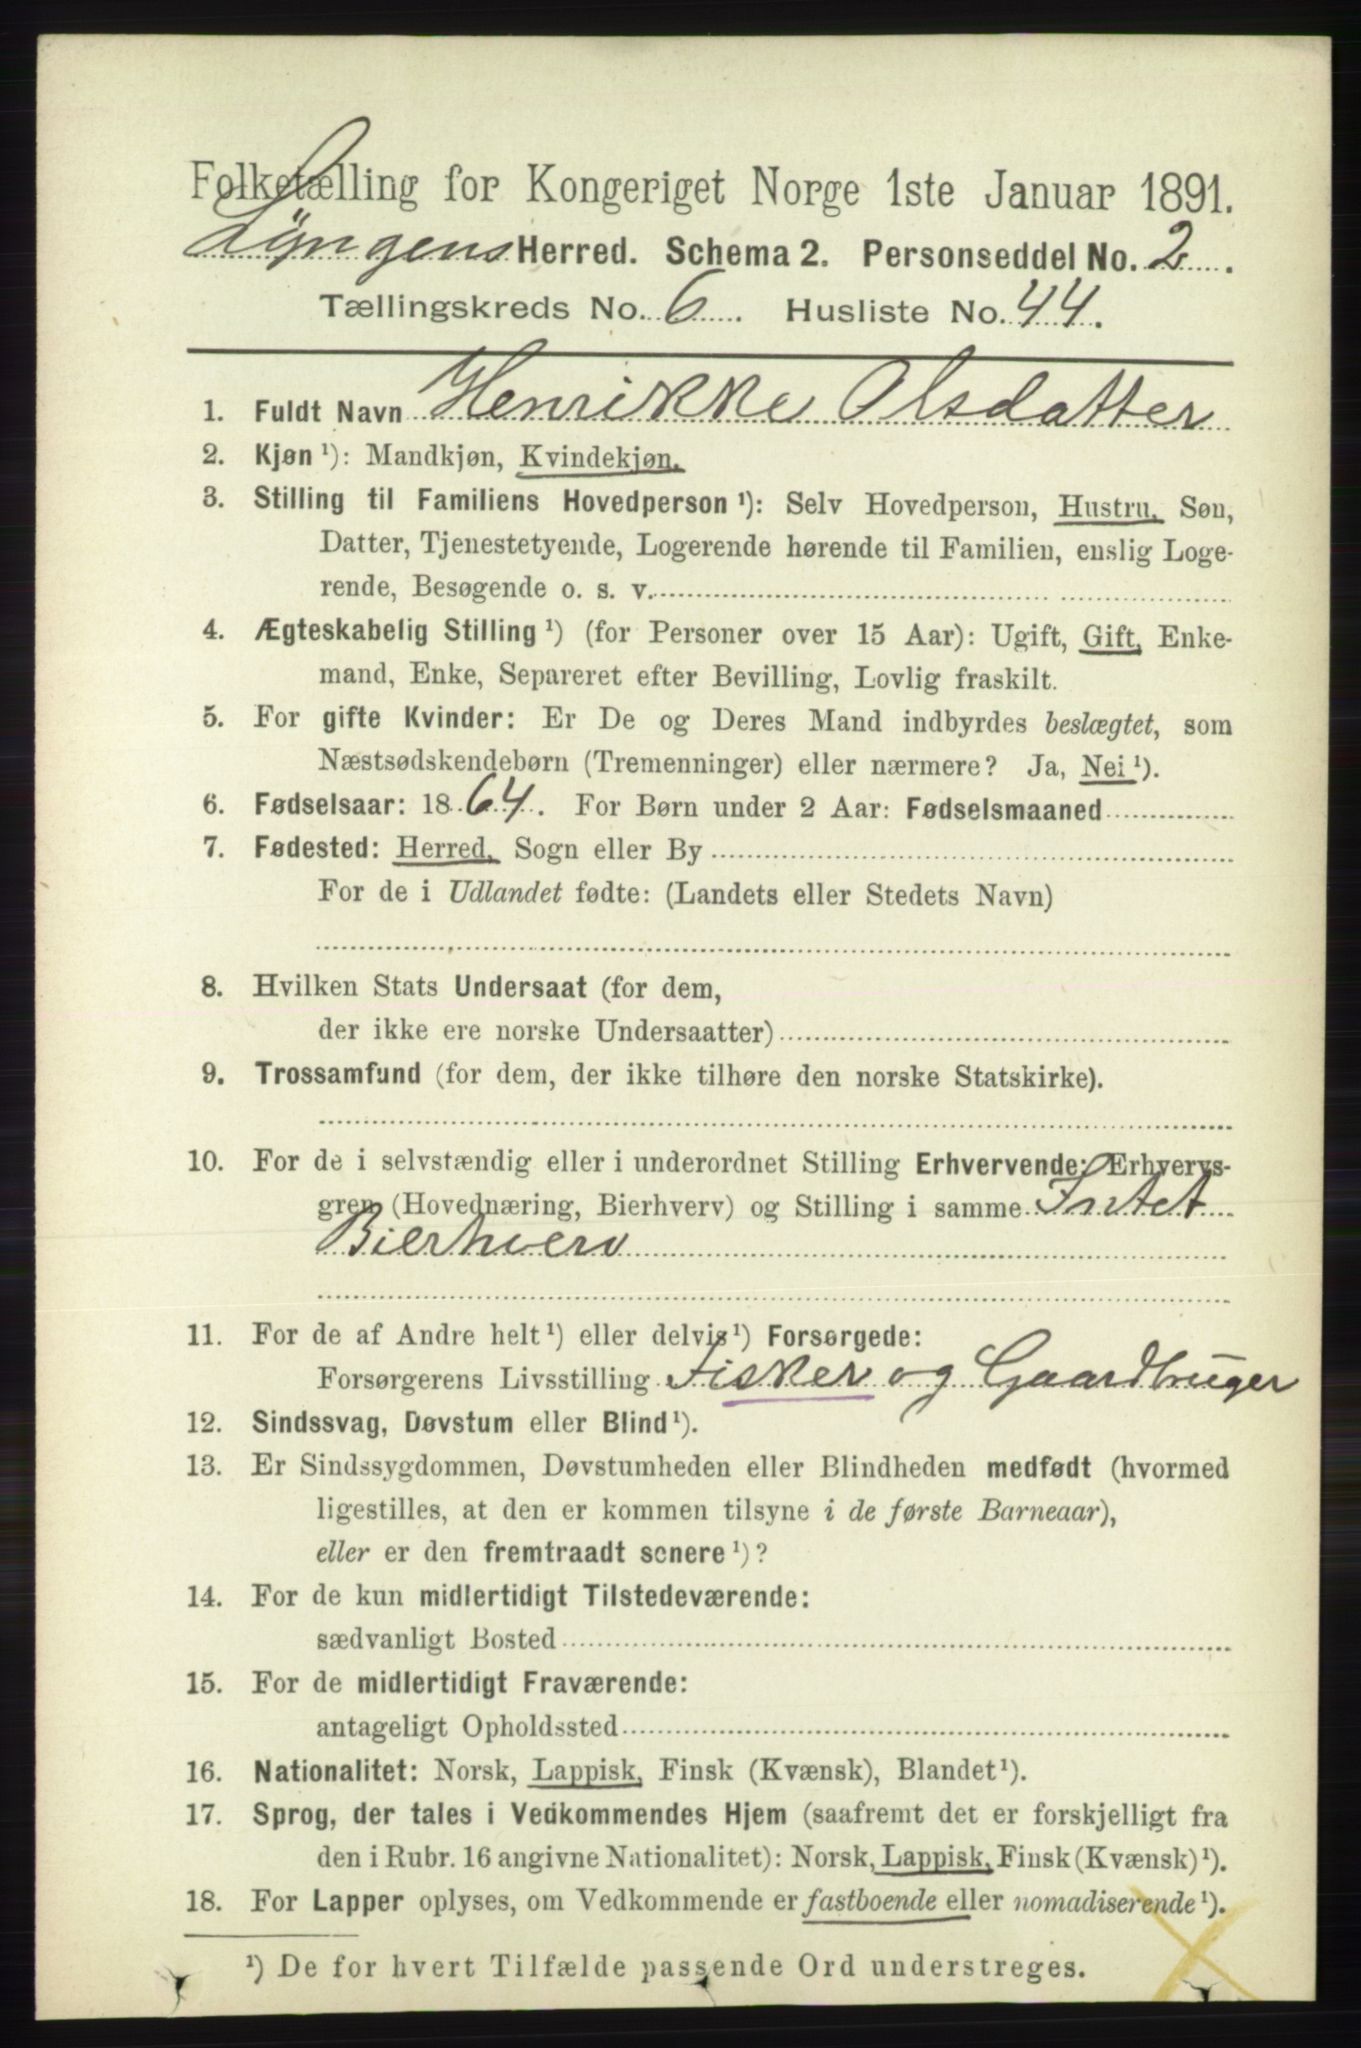 Folketælling for Kongeriget Norge 1ste Januar 1891.
Lyngens Herred. Schema 2. Personseddel No. 2.
Tællingskreds No. 6. Husliste No. 44.
1. Fuldt Navn Henrikke Olsdatter
2. Kjøn ¹): Mandkjøn, Kvindekjøn.
3. Stilling til Familiens Hovedperson ¹): Selv Hovedperson, Hustru, Søn,
Datter, Tjenestetyende, Logerende hørende til Familien, enslig Loge-
rende, Besøgende o. s. v.
4. Ægteskabelig Stilling ¹) (for Personer over 15 Aar): Ugift, Gift, Enke-
mand, Enke, Separeret efter Bevilling, Lovlig fraskilt.
5. For gifte Kvinder: Er De og Deres Mand indbyrdes beslægtet, som
Næstsødskendebørn (Tremenninger) eller nærmere? Ja, Nei ¹).
6. Fødselsaar: 1864. For Børn under 2 Aar: Fødselsmaaned
7. Fødested: Herred, Sogn eller By
For de i Udlandet fødte: (Landets eller Stedets Navn)
8. Hvilken Stats Undersaat (for dem,
der ikke ere norske Undersaatter)
9. Trossamfund (for dem, der ikke tilhøre den norske Statskirke).
10. For de i selvstændig eller i underordnet Stilling Erhvervende: Erhvervs-
gren (Hovednæring, Bierhverv) og Stilling i samme Intet
Bierhverv
11. For de af Andre helt ¹) eller delvis ¹) Forsørgede:
Forsørgerens Livsstilling Fisker og Gaardbruger
12. Sindssvag, Døvstum eller Blind ¹).
13. Er Sindssygdommen, Døvstumheden eller Blindheden medfødt (hvormed
ligestilles, at den er kommen tilsyne i de første Barneaar),
eller er den fremtraadt senere ¹)?
14. For de kun midlertidigt Tilstedeværende:
sædvanligt Bosted
15. For de midlertidigt Fraværende:
antageligt Opholdssted
16. Nationalitet: Norsk, Lappisk, Finsk (Kvænsk), Blandet ¹).
17. Sprog, der tales i Vedkommendes Hjem (saafremt det er forskjelligt fra
den i Rubr. 16 angivne Nationalitet): Norsk, Lappisk, Finsk (Kvænsk) ¹).
18. For Lapper oplyses, om Vedkommende er fastboende eller nomadiserende ¹).
¹) De for hvert Tilfælde passende Ord understreges.